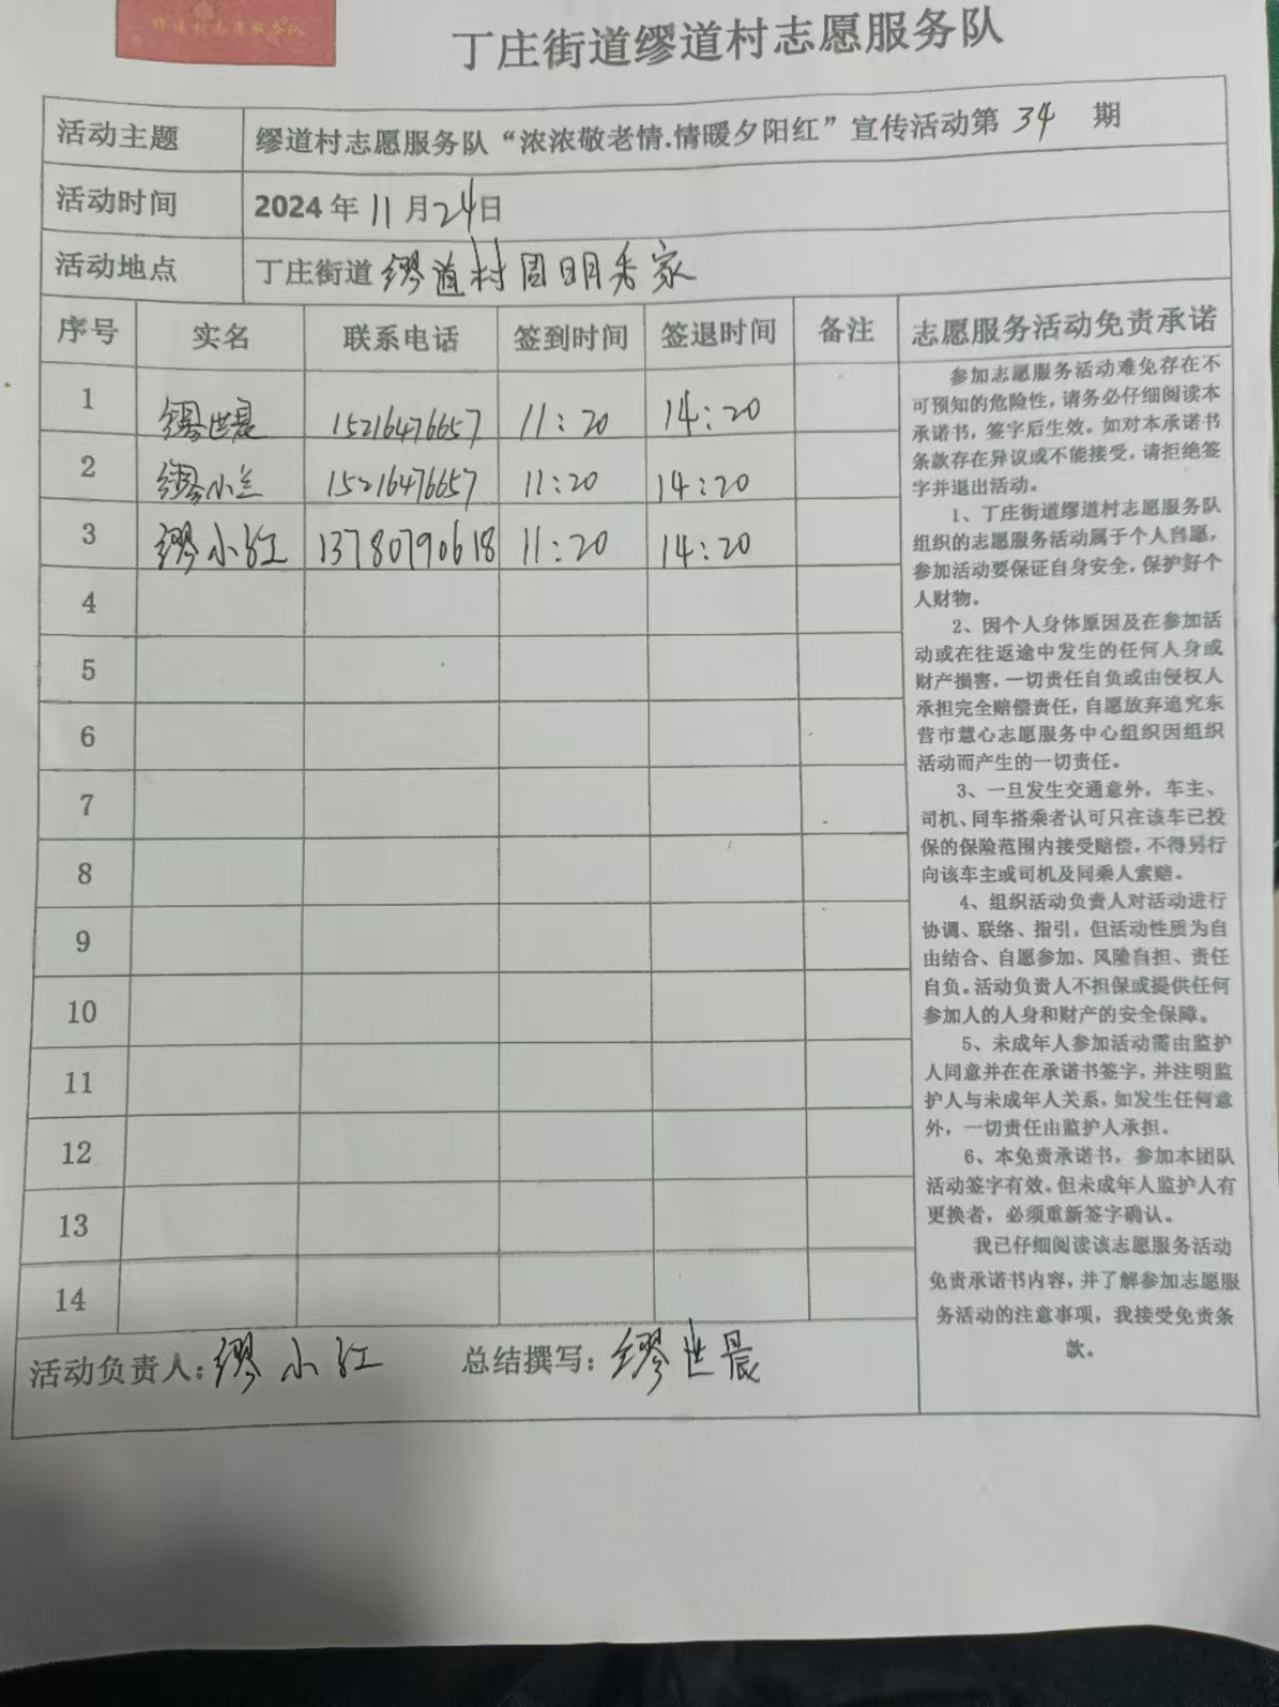 缪道村志愿服务队
丁庄街道缪道村志愿服务队
活动主题 缪道村志愿服务队“浓浓敬老情.情暖夕阳红”宣传活动第 34 期
活动时间 2024年11月24日
活动地点 丁庄街道缪道村周明秀家
序号 实名 联系电话 签到时间 签退时间 备注
1 缪世晨 15216476657 11:20 14:20
2 缪小兰 15216476657 11:20 14:20
3 缪小红 13780790618 11:20 14:20
4
5
6
7
8
9
10
11
12
13
14
活动负责人:缪小红 总结撰写:缪世晨
志愿服务活动免责承诺
参加志愿服务活动难免存在不
可预知的危险性,请务必仔细阅读本
承诺书,签字后生效。如对本承诺书
条款存在异议或不能接受,请拒绝签
字并退出活动。
1、丁庄街道缪道村志愿服务队
组织的志愿服务活动属于个人自愿,
参加活动要保证自身安全,保护好个
人财物。
2、因个人身体原因及在参加活
动或在往返途中发生的任何人身或
财产损害,一切责任自负或由侵权人
承担完全赔偿责任,自愿放弃追究东
营市慧心志愿服务中心组织因组织
活动而产生的一切责任。
3、一旦发生交通意外,车主、
司机、同车搭乘者认可只在该车已投
保的保险范围内接受赔偿,不得另行
向该车主或司机及同乘人索赔。
4、组织活动负责人对活动进行
协调、联络、指引,但活动性质为自
由结合、自愿参加、风险自担、责任
自负。活动负责人不担保或提供任何
参加人的人身和财产的安全保障。
5、未成年人参加活动需由监护
人同意并在在承诺书签字,并注明监
护人与未成年人关系,如发生任何意
外,一切责任由监护人承担。
6、本免责承诺书,参加本团队
活动签字有效。但未成年人监护人有
更换者,必须重新签字确认。
我已仔细阅读该志愿服务活动
免责承诺书内容,并了解参加志愿服
务活动的注意事项,我接受免责条
款。